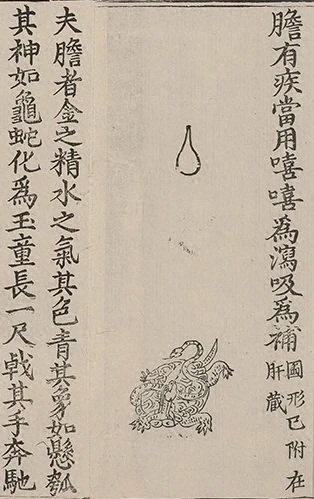 膽有疾當用嘻嘻爲瀉吸爲補
圖形已附在
肝藏
夫膽者金之精水之氣其色青其象如懸瓠
其神如龜蛇化爲玉童長一尺戟其手奔馳